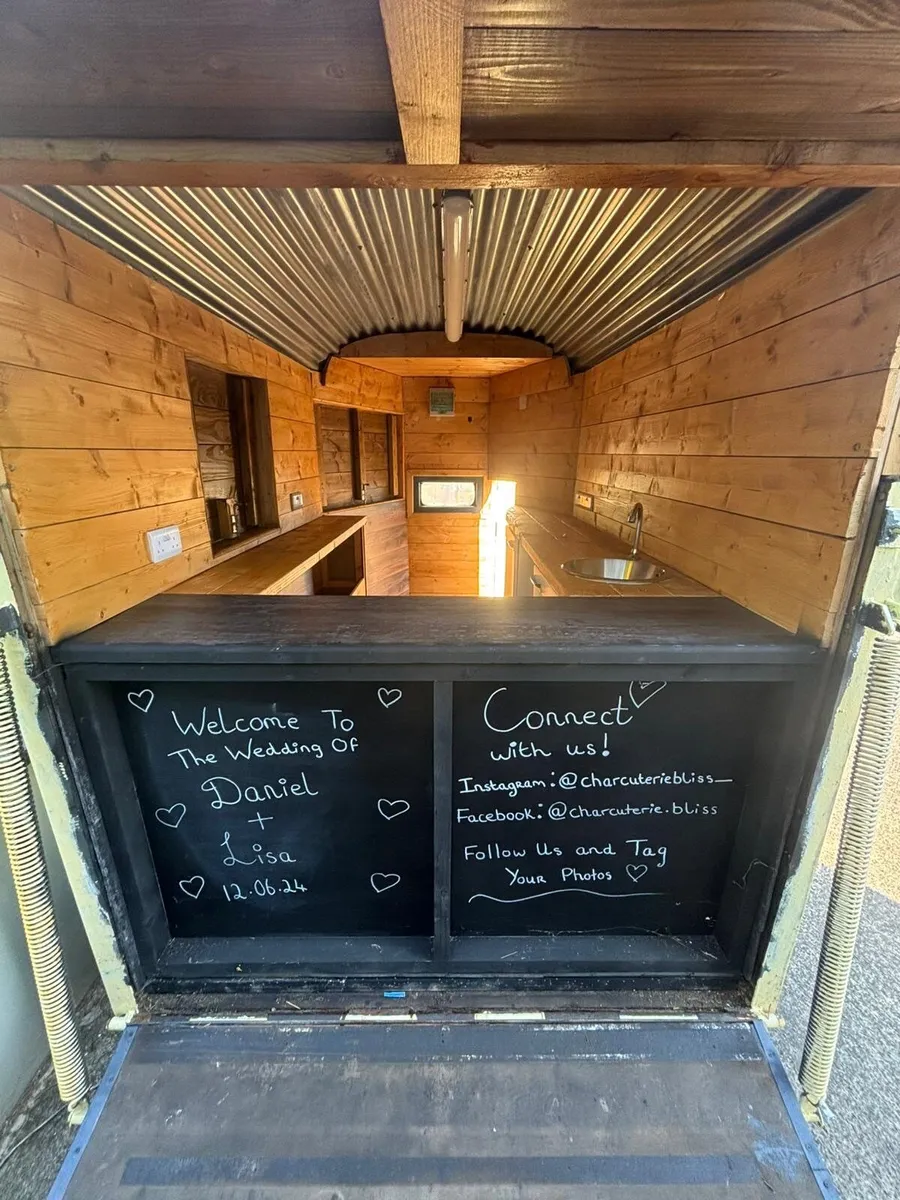 Welcome To
The Wedding Of
Daniel
+
Lisa
12.06.24
Connect
with us!
Instagram: @charcuteriebliss_
Facebook: @charcuterie.bliss
Follow Us and Tag
Your Photos